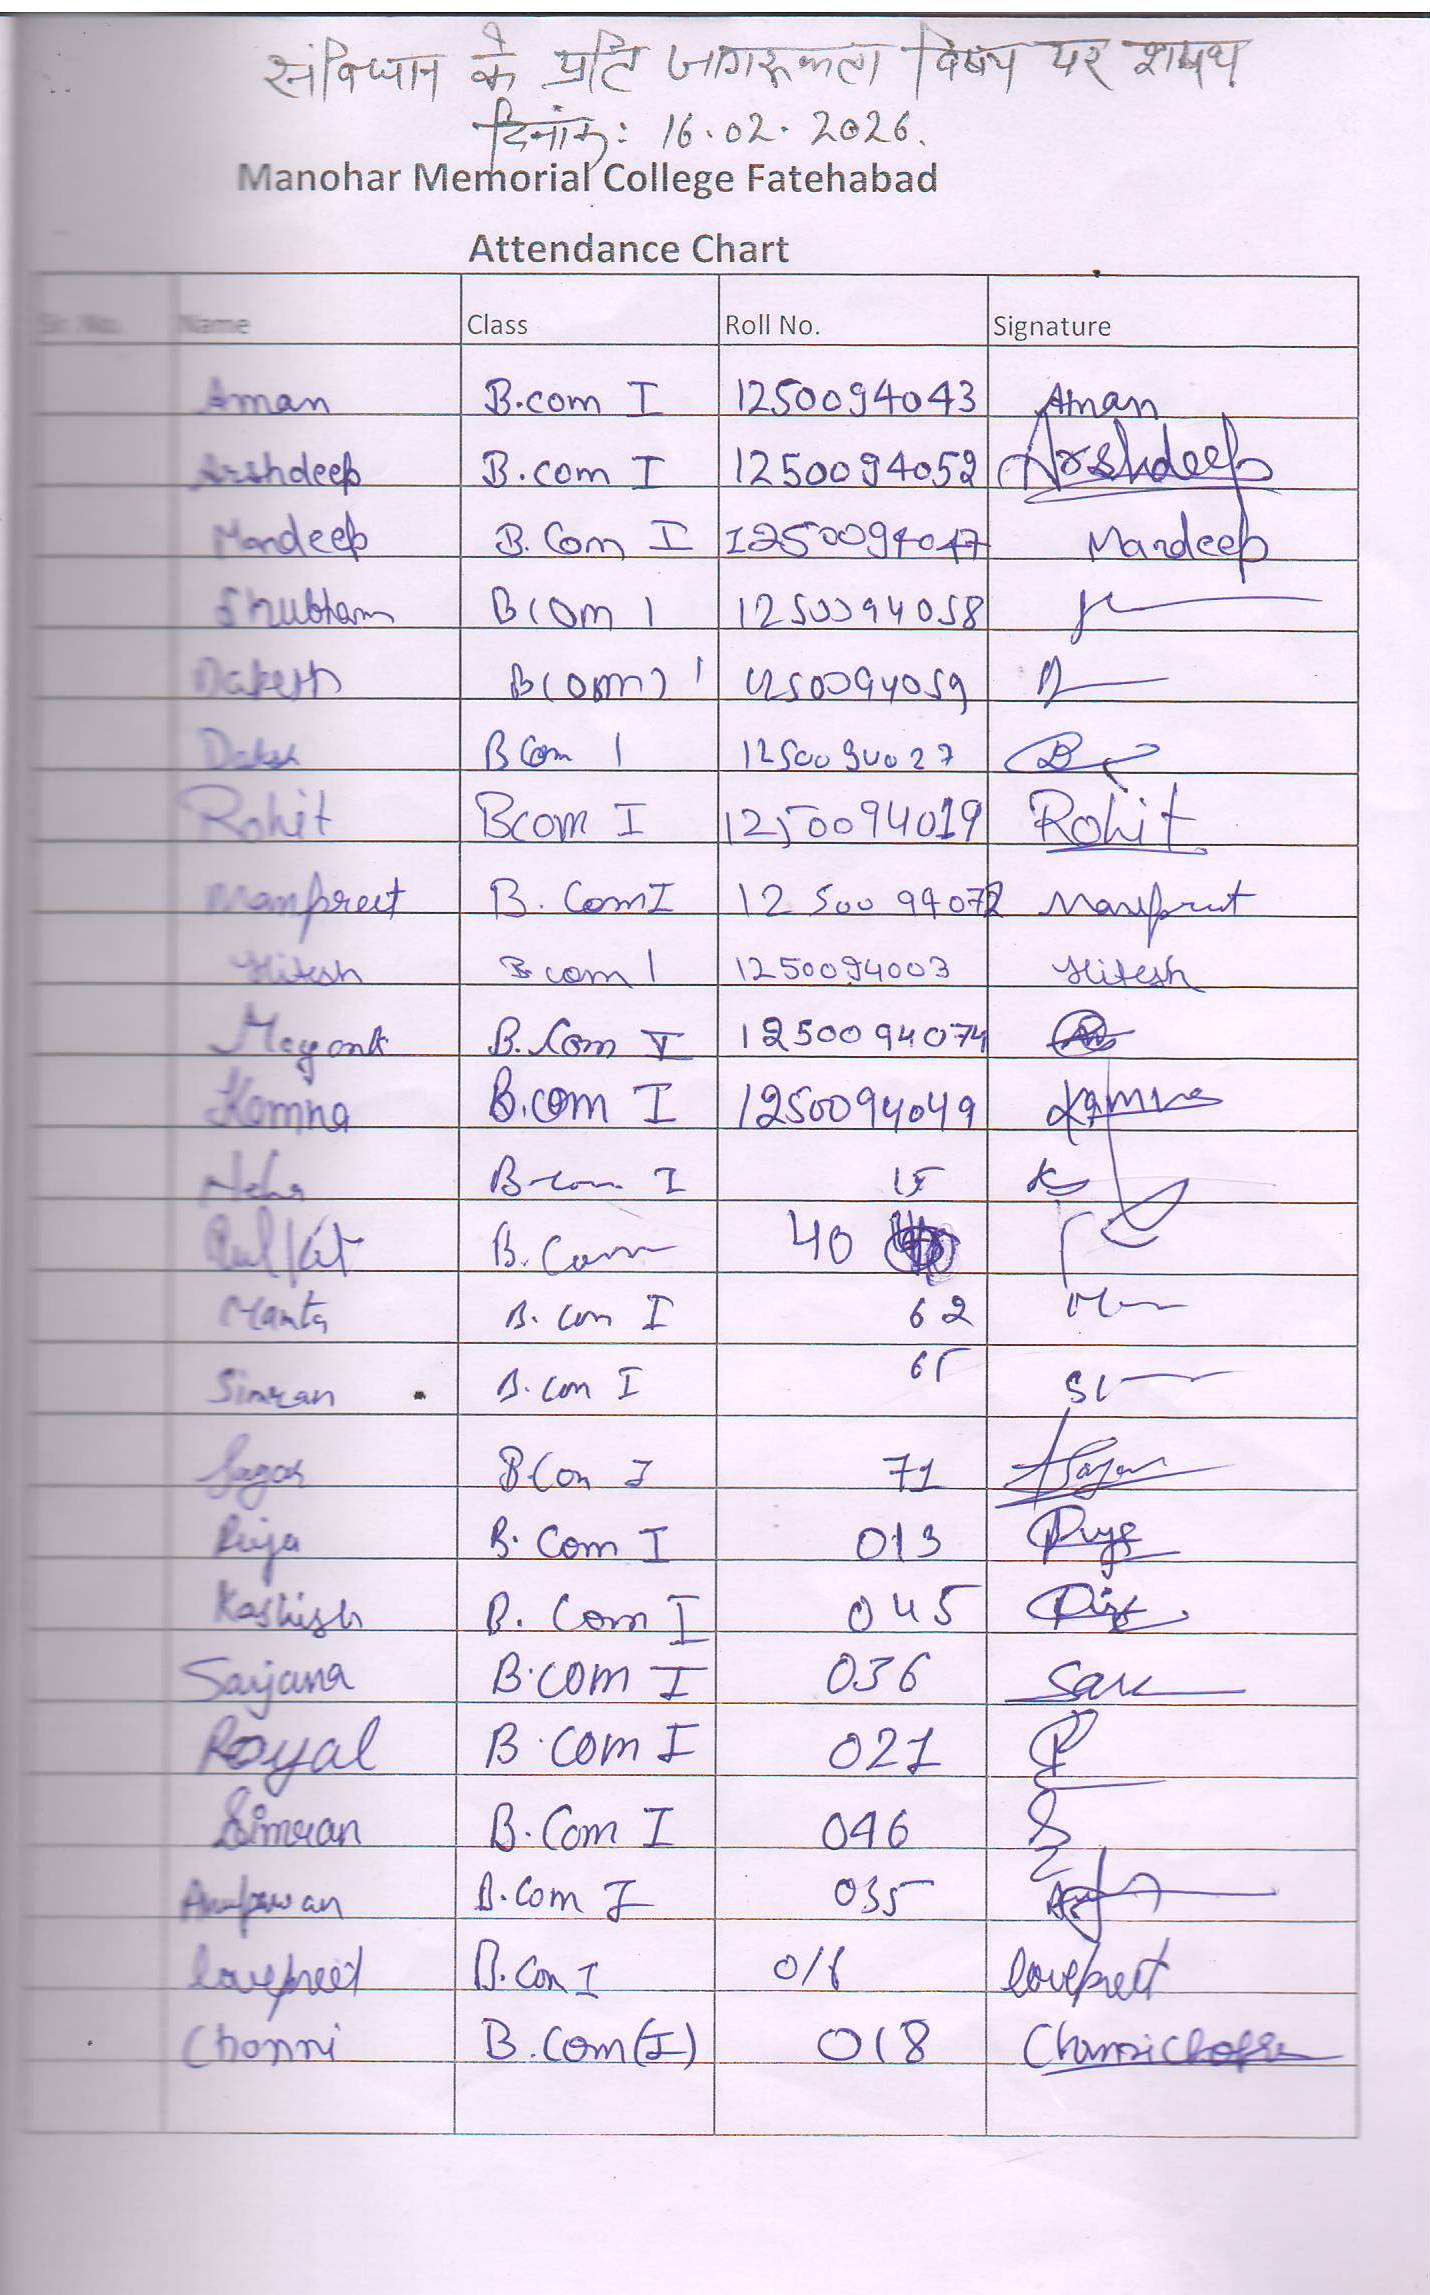 संविधान के प्रति जागरूकता विषय पर शपथ
दिनांक: 16.02.2026.
Manohar Memorial College Fatehabad
Attendance Chart
Sr. No. Name Class Roll No. Signature
Aman B.com I 1250094043 Aman
Arshdeep B.com I 1250094052 Arshdeep
Mandeep B.Com I 1250094047 Mandeep
Shubham BCom 1 1250094058
BCom 1 1250094059
Daksh BCom 1 1250094027
Rohit Bcom I 1250094019 Rohit
Manpreet B. Com I 1250094072 Manpreet
Hitesh B com 1 1250094003 Hitesh
Mayank B.Com I 1250094074
Komna B.com I 1250094049 Kamna
Neha B.com I 15
Pulkit B.Com 40
Manta B.Com I 62
Simran B.Com I 65
Sagar BCom I 71 Sagar
Puja B.Com I 013 Puja
Kashish B.Com I 045
Sanjana B.com I 036
Royal B.com I 021
Simran B.Com I 046
B.com I 035
lovepreet B.Com I lovepreet
Chonni B.com(I) 018